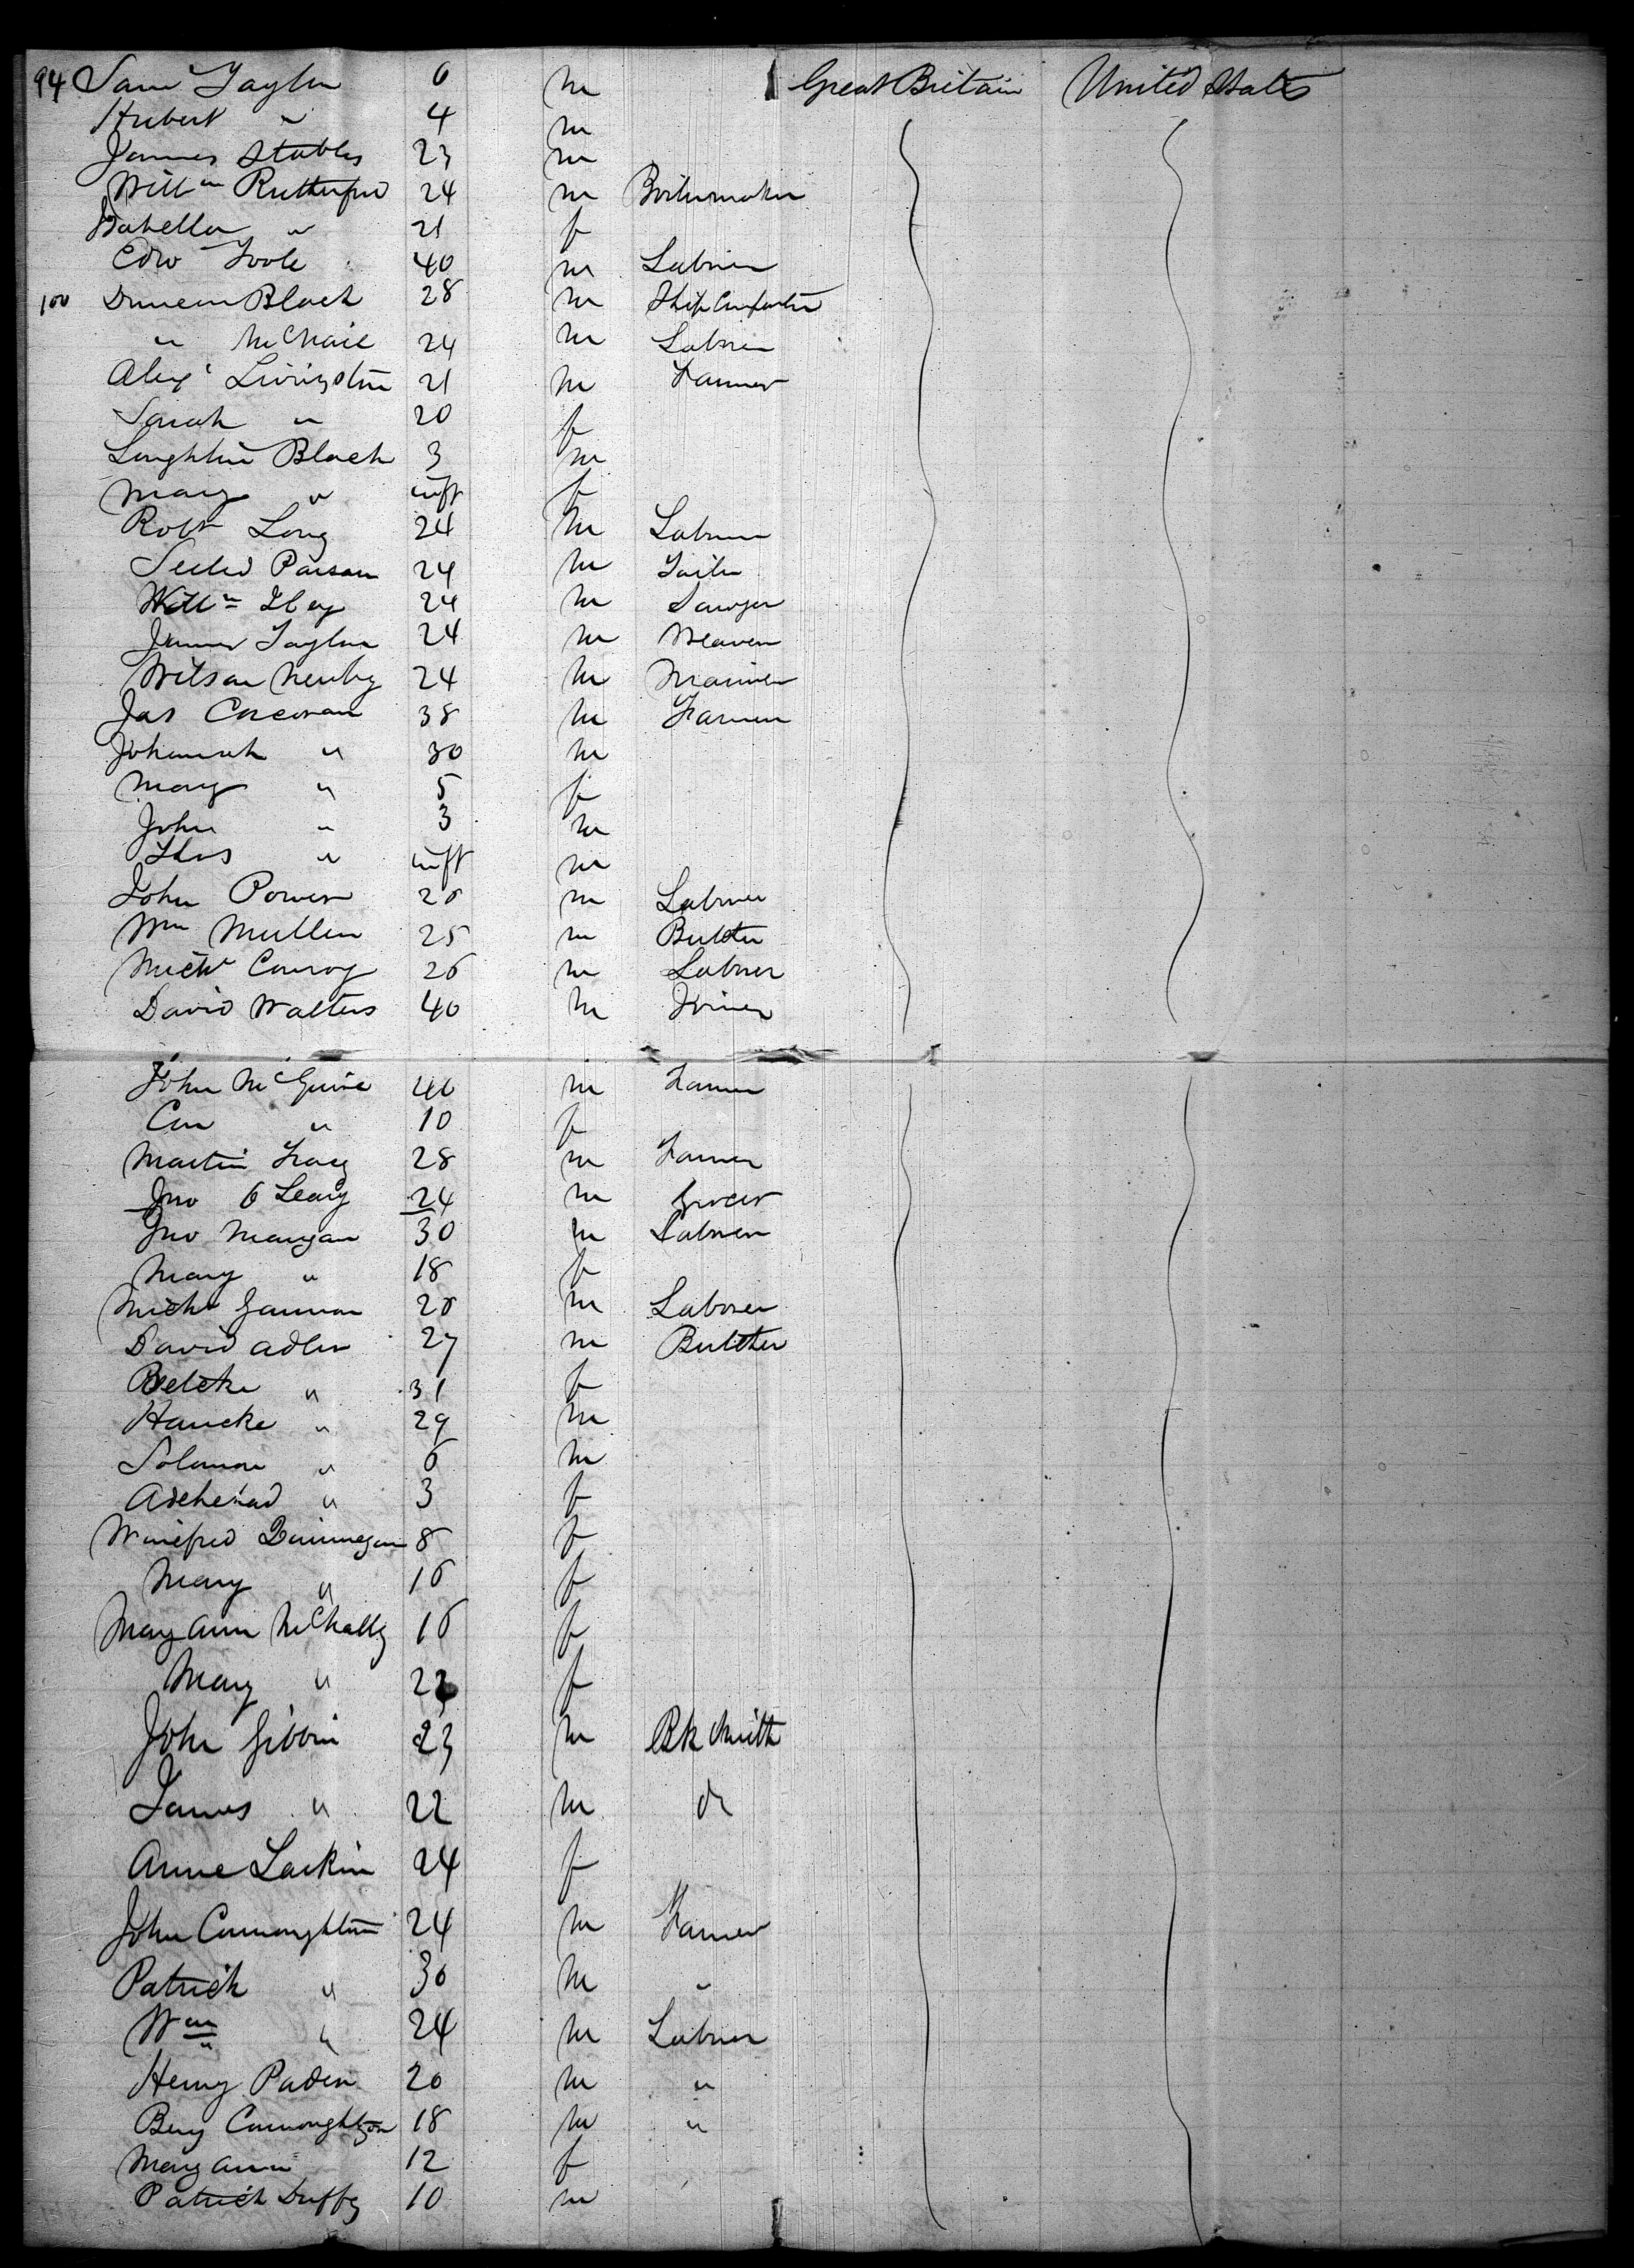 94 Sam Taylor 6 m Great Britain United States
Hubert " 4 m
James Stables 23 m
Willm Rutherford 24 m Boilermaker
Isabella " 21 f
Edw Toole 40 m Laborer
100 Duncan Black 28 m Ship Carpenter
" McPhail 24 m Laborer
Alexr Livingston 21 m Farmer
Sarah " 20 f
Loughlin Black 3 m
Mary " inft f
Robt Long 24 m Laborer
24 m
Willm 24 m Sawyer
James Taylor 24 m Weaver
Wilson Newby 24 m Mariner
Jas Corcoran 38 m Farmer
Johannah " 30 m
Mary " 5 f
John " 3 m
Thos " inft m
John Power 26 m Laborer
Wm Mullen 25 m Butcher
Michl Conroy 26 m Laborer
David Walters 40 m Joiner
John McGuire 40 m Farmer
" 10 f
Martin Tracy 28 m Farmer
Jno O Leary 24 m Grocer
Jno Mangan 30 m Laborer
Mary " 18 f
Michl Gannon 26 m Laborer
David Adler 27 m Butcher
" 31 f
Hancke " 29 m
Solomon " 6 m
" 3 f
Winifred 8 f
Mary " 16 f
Mary Ann McNally 16 f
Mary " 22 f
John Gibbin 23 m Blk Smith
James " 22 m do
Anne Larkin 24 f
John Connoughton 24 m Farmer
Patrick " 30 m "
Wm " 24 m Laborer
Henry Paden 20 m "
Benj Connoughton 18 m "
Mary Ann 12 f
Patrick Duffy 10 m